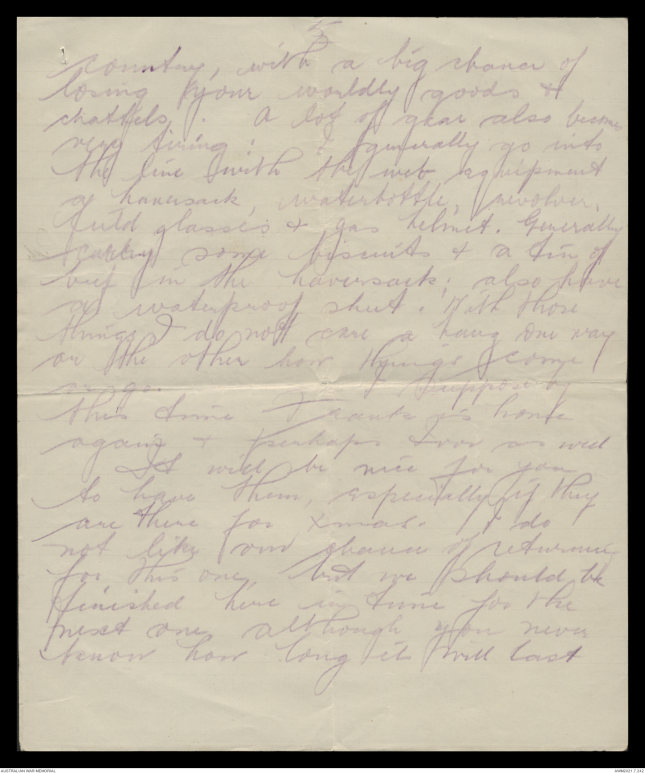 5
country, with a big chance of
losing your worldly goods &
chattels. A lot of gear also becomes
very tiring. I generally go into
the line with the web equipment
a haversack, waterbottle, revolver,
field glasses & gas helmet. Generally
carry some biscuits & a tin of
beef in the haversack; also have
a waterproof sheet. With those
things I do not care a hang one way
or the other how things come
or go. I suppose by
this time Frank is home
again & perhaps as well
It will be nice for you
to have them, especially if they
are there for Xmas. I do
not like our chance of returning
for this one, but we should be
finished here in time for the
next one although you never
know how long it will last
AUSTRALIAN WAR MEMORIAL